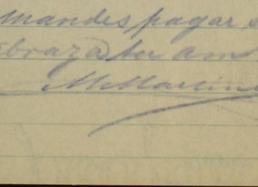 mandes pagar
abraza tu am
M Martin